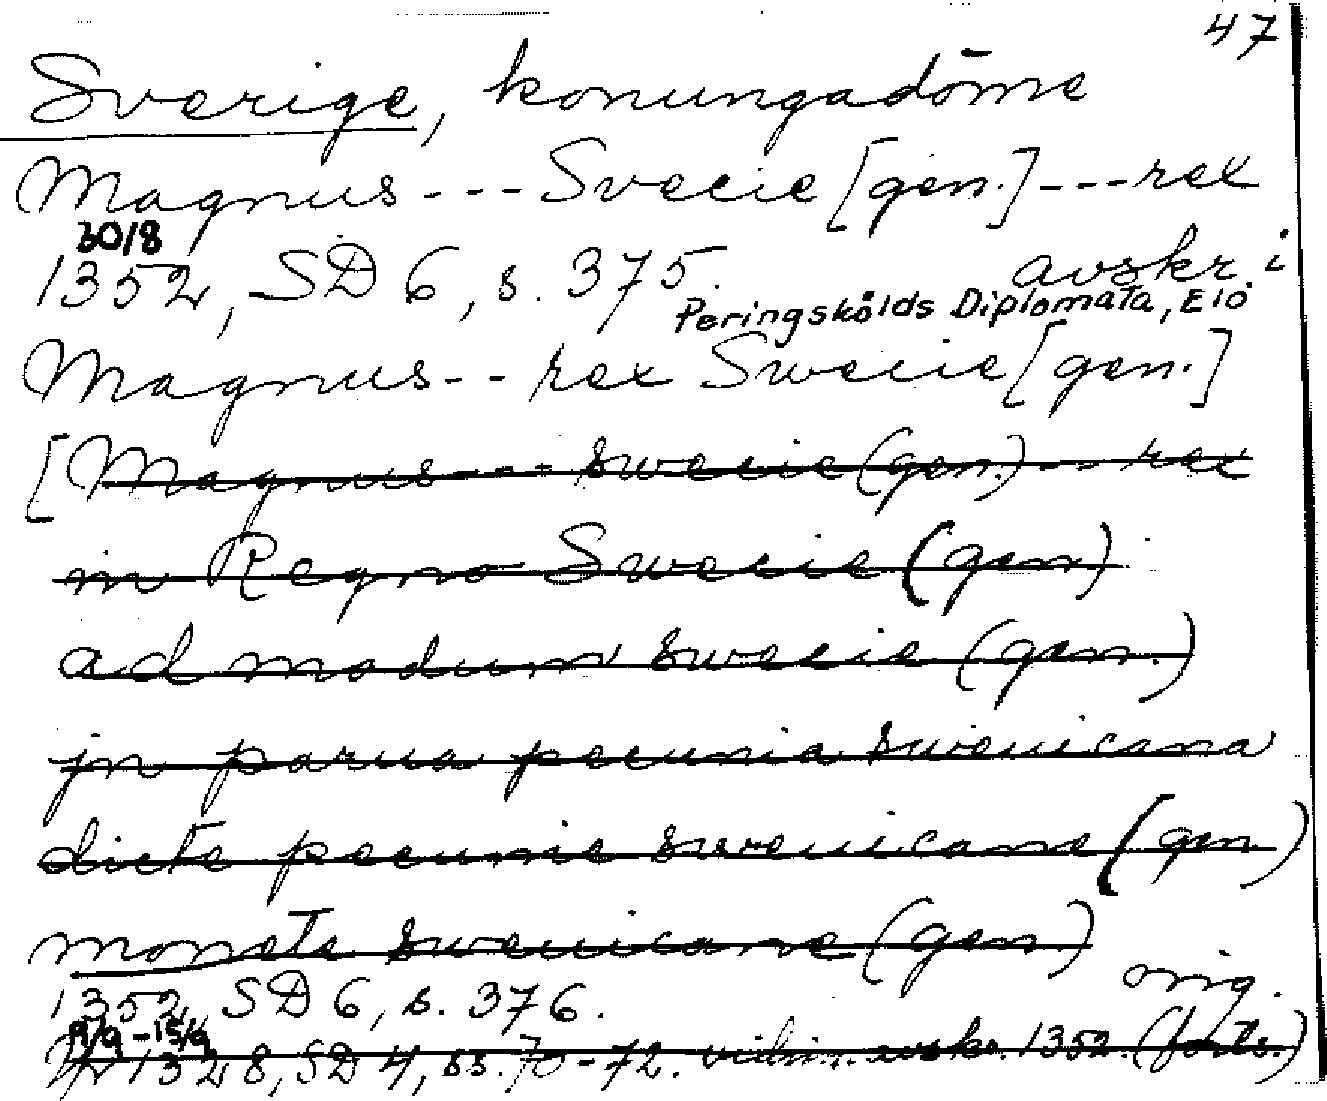 47
Sverige, konungadöme
Magnus --- Svecie [gen.] --- rex
30/8
1352, SD 6, s. 375. avskr. i
Peringskölds Diplomata, E 10
Magnus -- rex Swecie [gen.]
[Magnus --- Swecie (gen.) --- rex
in Regno Swecie (gen)
ad modum Swecie (gen.)
jn parua pecunia swenicana
dicte pecunie swenicane (gen)
monete swenicane (gen.)
1352, SD 6, s. 376. orig.
1328, SD 4, ss. 70-72. vidim. avskr. 1352. (forts.)